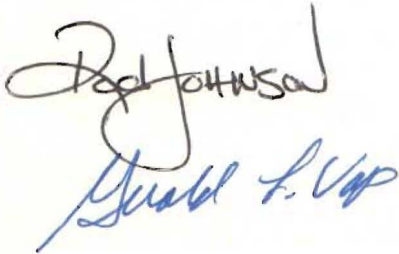 Rod Johnson
Gerald L. Vap